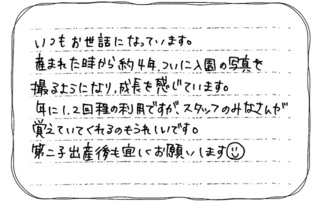 いつもお世話になっています。
産まれた時から約4年、ついに入園の写真を
撮るようになり、成長を感じています。
年に1.2回程の利用ですが、スタッフのみなさんが
覚えていてくれるのもうれしいです。
第二子出産後も宜しくお願いします☺